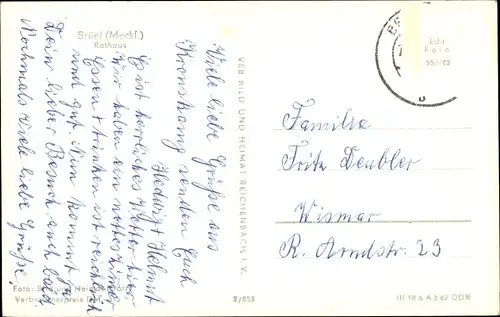 Brüel (Meckl.)
Rathaus
Viele liebe Grüße aus
senden Euch
Hedwig + Helmut
Es ist herrliches Wetter hier
Wir haben ein nettes Zimmer
Essen + trinken ist reichlich
und gut. Nun kommt ja
Dein lieber Besuch auch bald
Nochmals viele liebe Grüße.
VEB BILD UND HEIMAT REICHENBACH I. V.
Echt
Foto
Familie
Fritz Deubler
Wismar
R. Arndstr. 23
Foto: Bild und Heimat
Verbraucherpreis
III 18 6 A 3 62 DDR